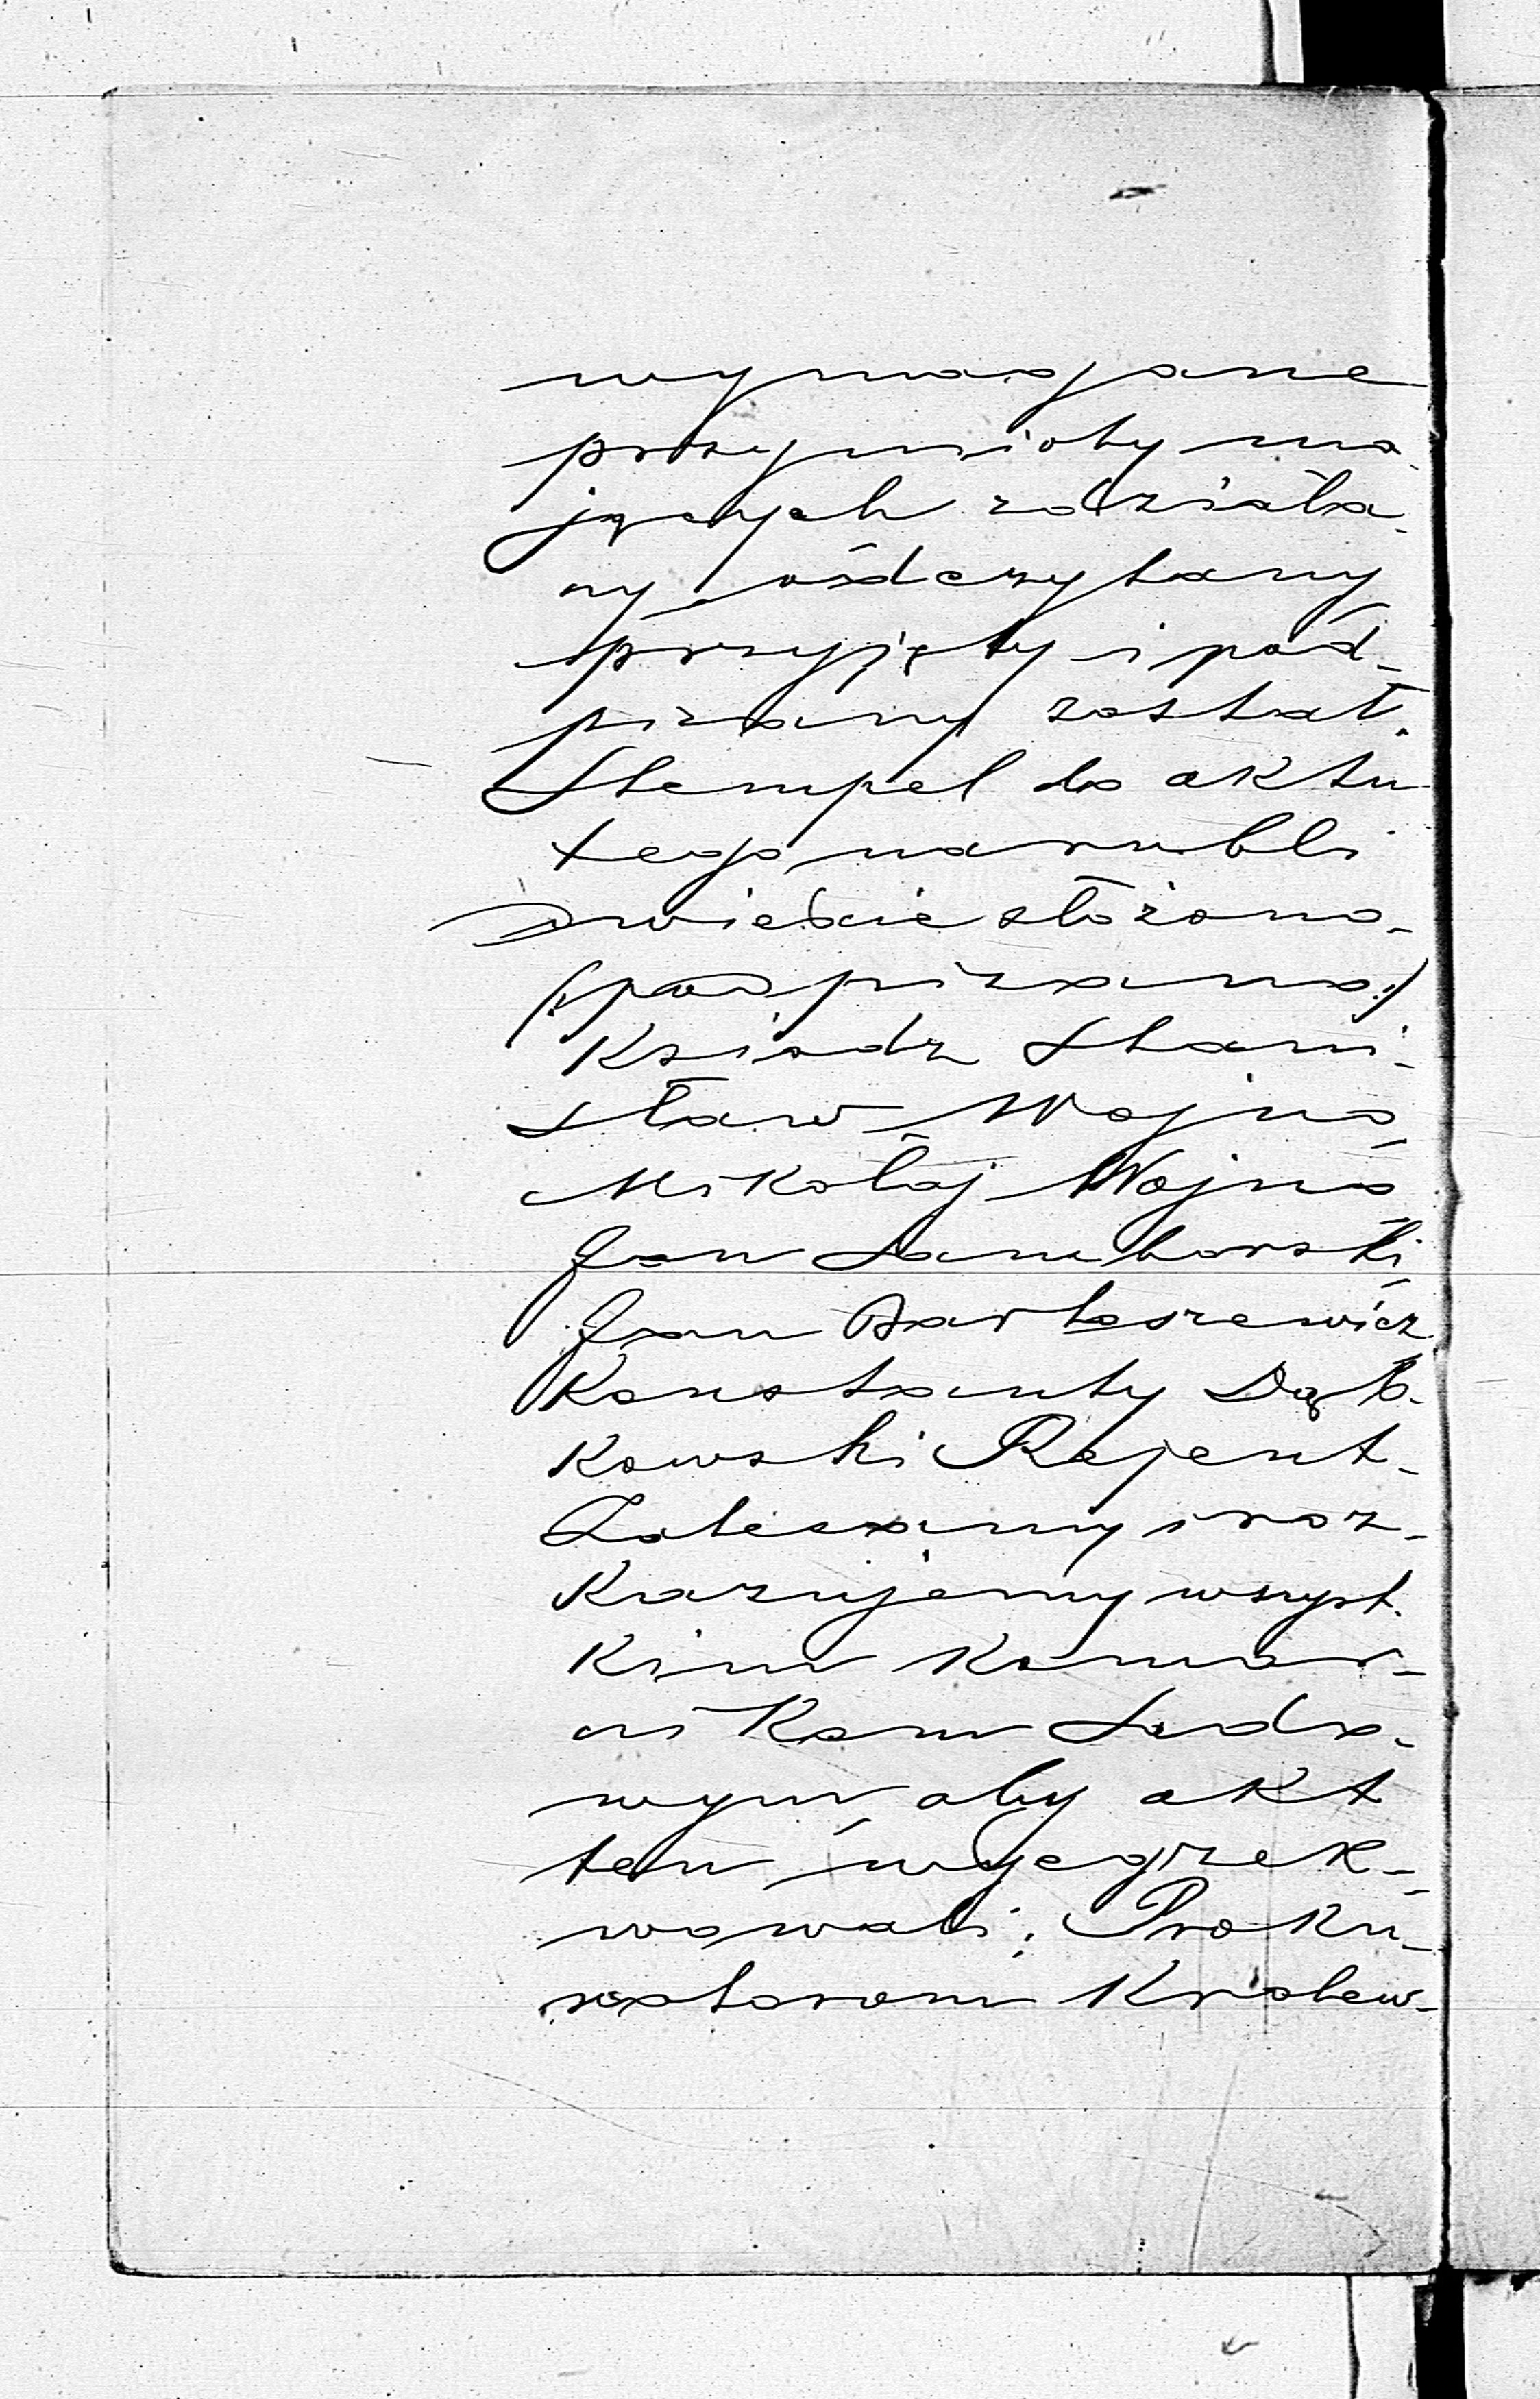 wymagane
przymioty ma-
jących zdziała-
ny, odczytany
przyjęty i pod-
pisany został.
Stempel do aktu
tego na rubli
dwieście złożono.
(:podpisano:)
Ksiądz Stani-
sław Wojno
Mikołaj Wojno
Jan Samborski
Jan Bartoszewicz
Konstanty Dąb-
kowski Rejent-
Zalecamy i roz-
kazujemy wszyst-
kim komor-
nikom Sądo-
wym aby akt
ten wyegzek-
wowali; Proku-
ratorom Królew-